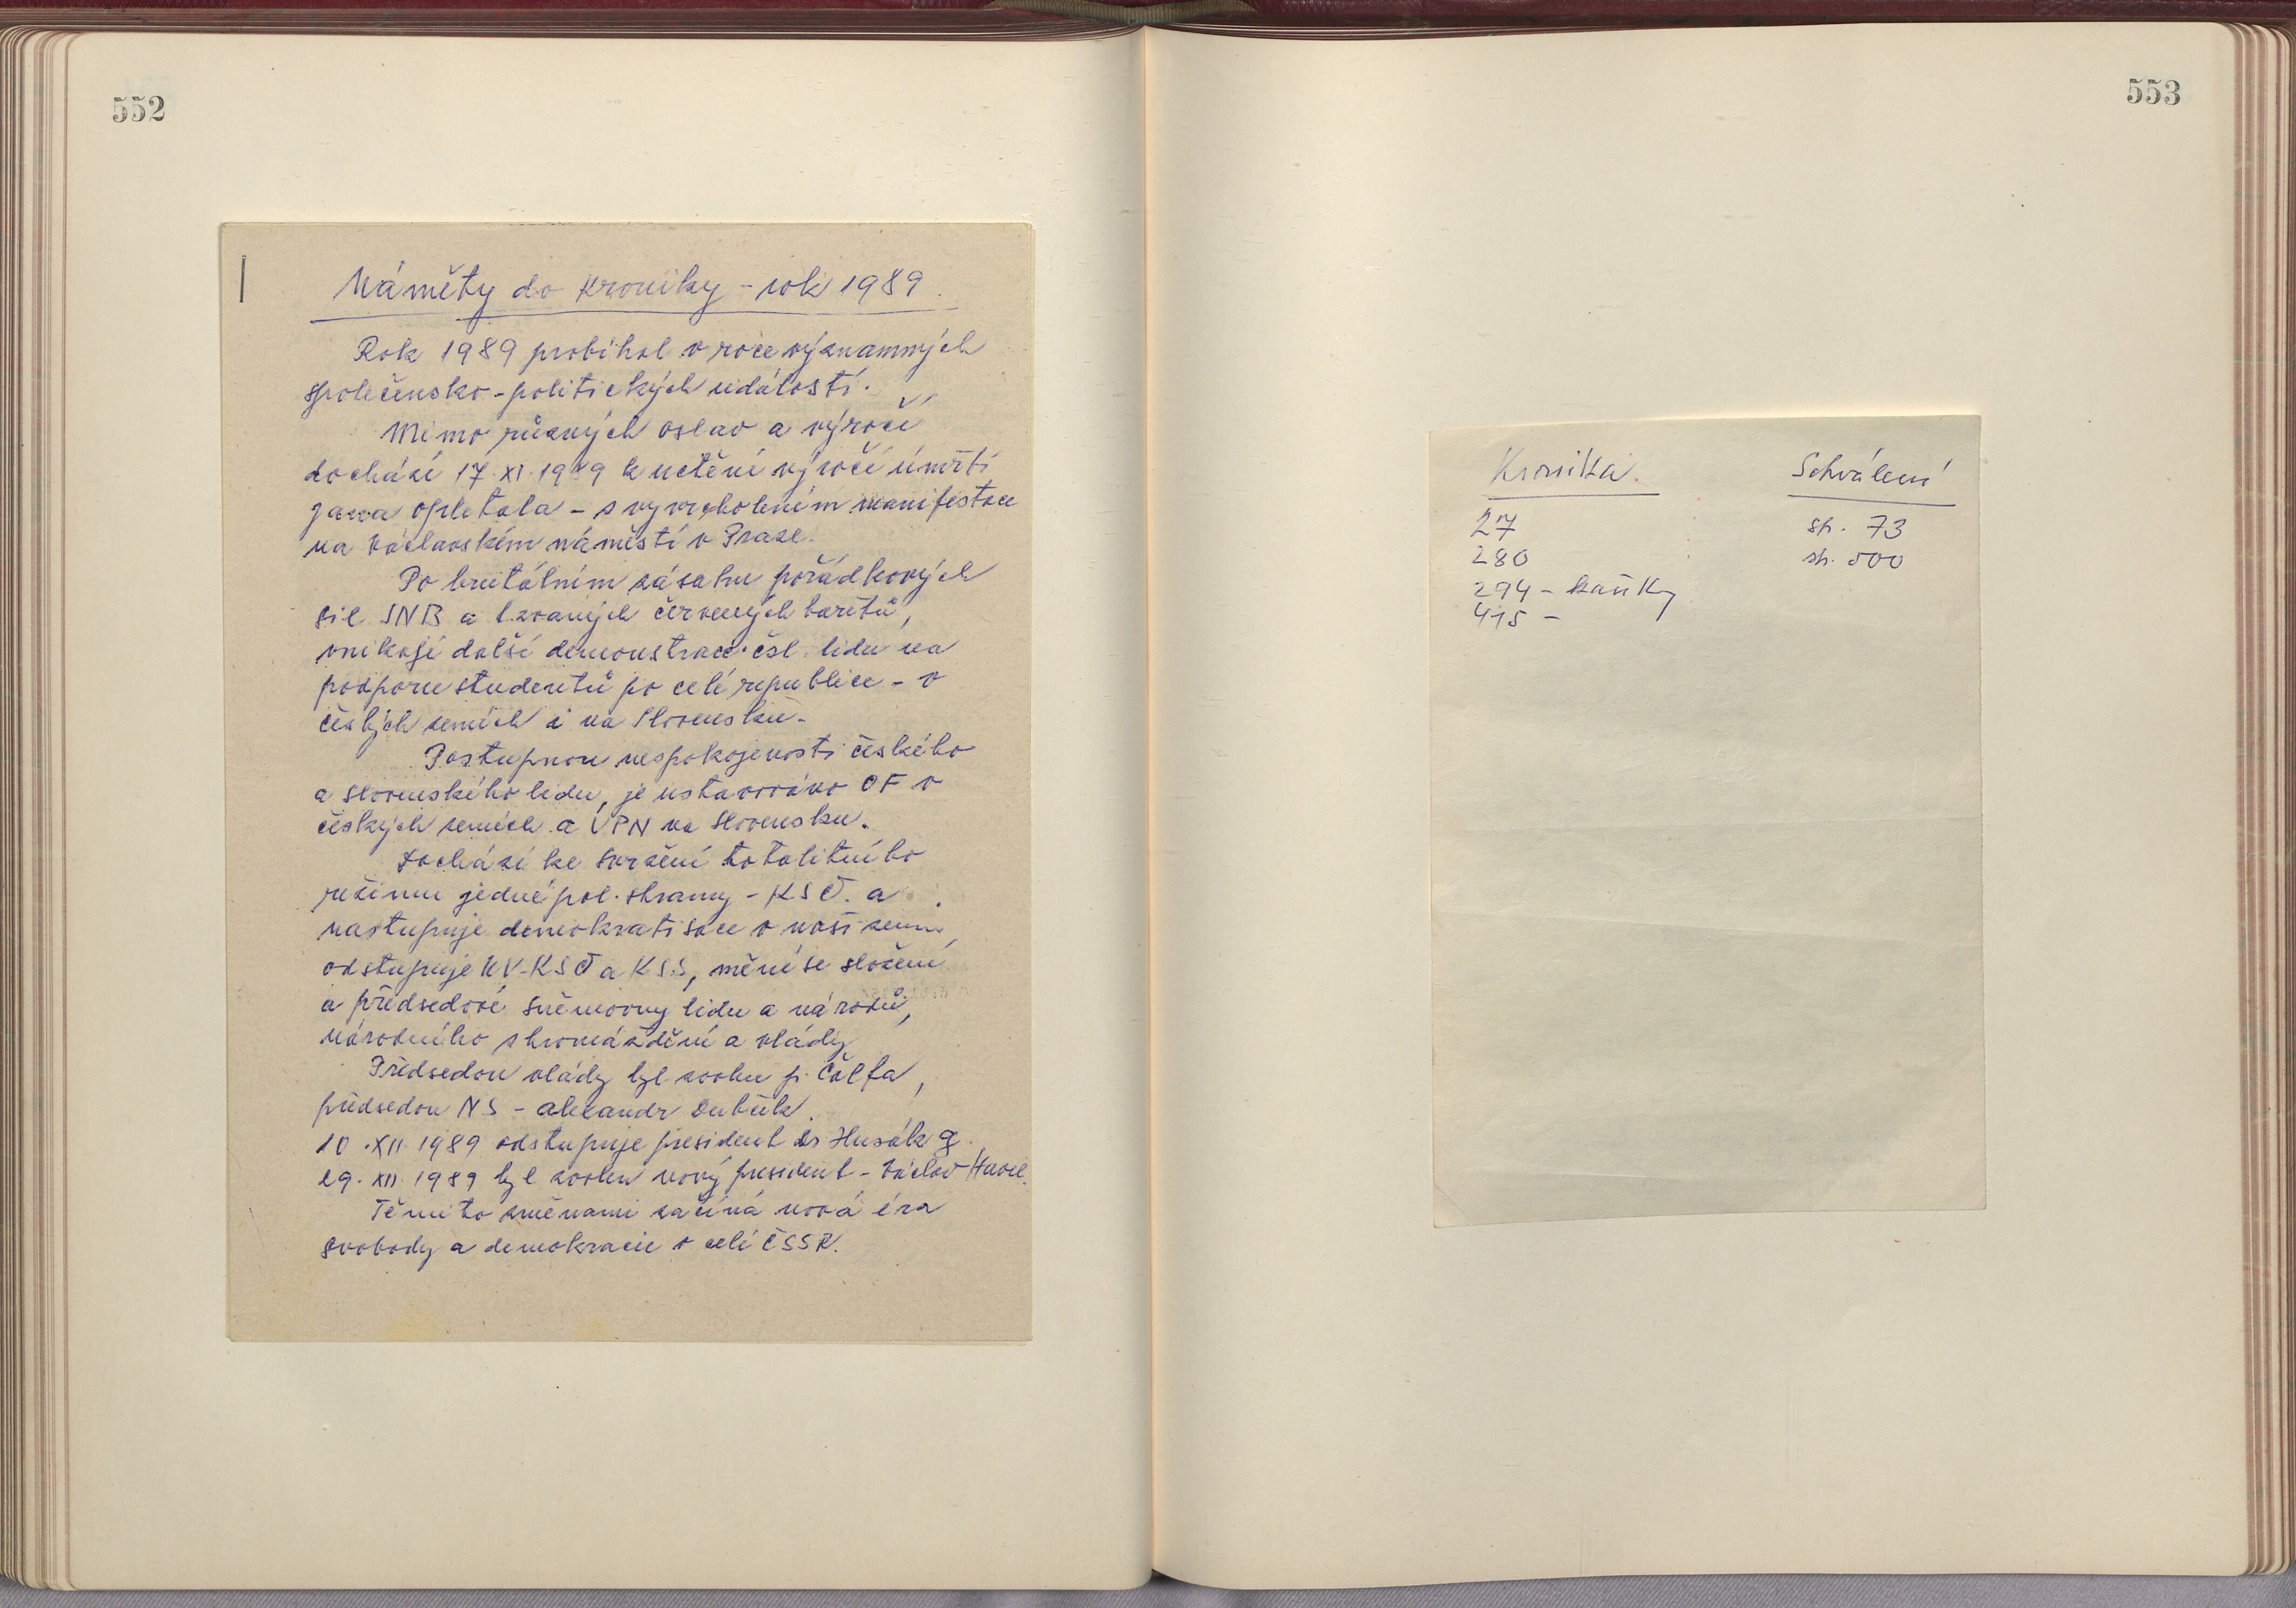 552
Náměty do Kroniky - rok 1989.
Rok 1989 probíhal v roce významných
společensko-politických událostí.
Mimo různých oslav a výročí
dochází 17.XI.1989 k uctění výročí úmrtí
Jana Opletala - s vyvrcholením manifestace
na Václavském náměstí v Praze.
Po brutálním zásahu pořádkových
sil SNB a t.zvaných červených baretů,
vnikají další demonstrace čsl. lidu na
podporu studentů po celé republice - v
českých zemích i na Slovensku.
Postupnou nespokojenosti českého
a slovenského lidu, je ustavováno OF v
českých zemích a VPN na Slovensku.
Dochází ke svržení totalitního
režimu jedné pol. strany - KSČ. a
nastupuje demokratisace v naší zemi,
odstupuje ÚV-KSČ a KSS, mění se složení
a předsedové sněmovny lidu a národů,
Národního shromáždění a vlády
Předsedou vlády byl zvolen p. Čalfa,
předsedou NS - Alexandr Dubček.
10.XII.1989 odstupuje president Dr Husák G.
29.XII.1989 byl zvolen nový president - Václav Havel.
Těmito změnami začíná nová éra
svobody a demokracie v celé ČSSR.
553
Kronika. Schválení
27 str. 73
280 str. 500
294 - kaňky
415 -